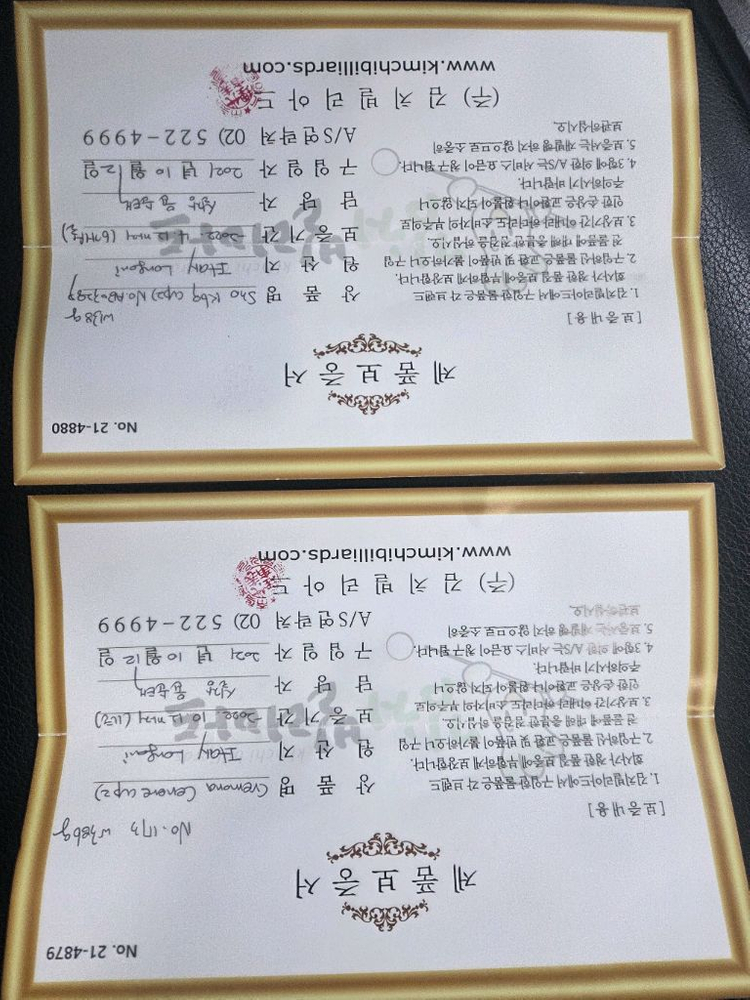 No. 21-4879
제 품 보 증 서
[ 보 증 내 용 ]
1. 김치빌리아드에서 구입한 물품은 각 브랜드
회사가 정한 품질 보증에 부합하게 보상합니다.
2. 구입하신 물품은 교환 및 반품이 불가하오니 구입
전 물품에 대해 충분한 점검을 하십시오.
3. 보상기간 이내라 하더라도 소비자의 부주의로
인한 손상은 교환이나 환불이 되지 않으니
주의하시기 바랍니다.
4. 3항에 의한 A/S는 서비스 요금이 청구됩니다.
5. 보증서는 재발행 하지 않으므로 소중히
보관하십시오.
No. 1173 w386g
상 품 명 Cremona Cerone
원 산 지 Italy Longoni
보 증 기 간 ~2022. 10. 12 까지 (1년)
담 당 자
구 입 일 자 2021 년 10 월 12 일
A/S연락처 02) 522-4999
(주) 김 치 빌 리 아 드
www.kimchibilliards.com
No. 21-4880
제 품 보 증 서
[ 보 증 내 용 ]
1. 김치빌리아드에서 구입한 물품은 각 브랜드
회사가 정한 품질 보증에 부합하게 보상합니다.
2. 구입하신 물품은 교환 및 반품이 불가하오니 구입
전 물품에 대해 충분한 점검을 하십시오.
3. 보상기간 이내라 하더라도 소비자의 부주의로
인한 손상은 교환이나 환불이 되지 않으니
주의하시기 바랍니다.
4. 3항에 의한 A/S는 서비스 요금이 청구됩니다.
5. 보증서는 재발행 하지 않으므로 소중히
보관하십시오.
상 품 명
원 산 지 Italy Longoni
보 증 기 간 ~2022. 4. 12 까지 (6개월)
담 당 자
구 입 일 자 2021 년 10 월 12 일
A/S연락처 02) 522-4999
(주) 김 치 빌 리 아 드
www.kimchibilliards.com